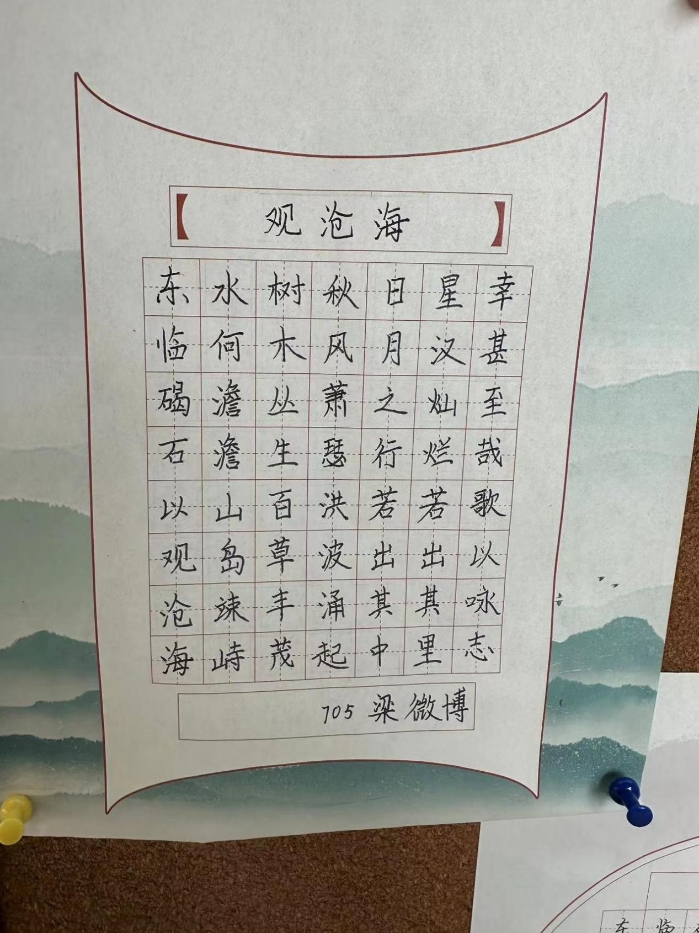 观沧海
东临碣石以观沧海
水何澹澹山岛竦峙
树木丛生百草丰茂
秋风萧瑟洪波涌起
日月之行若出其中
星汉灿烂若出其里
幸甚至哉歌以咏志
705 梁微博
东临